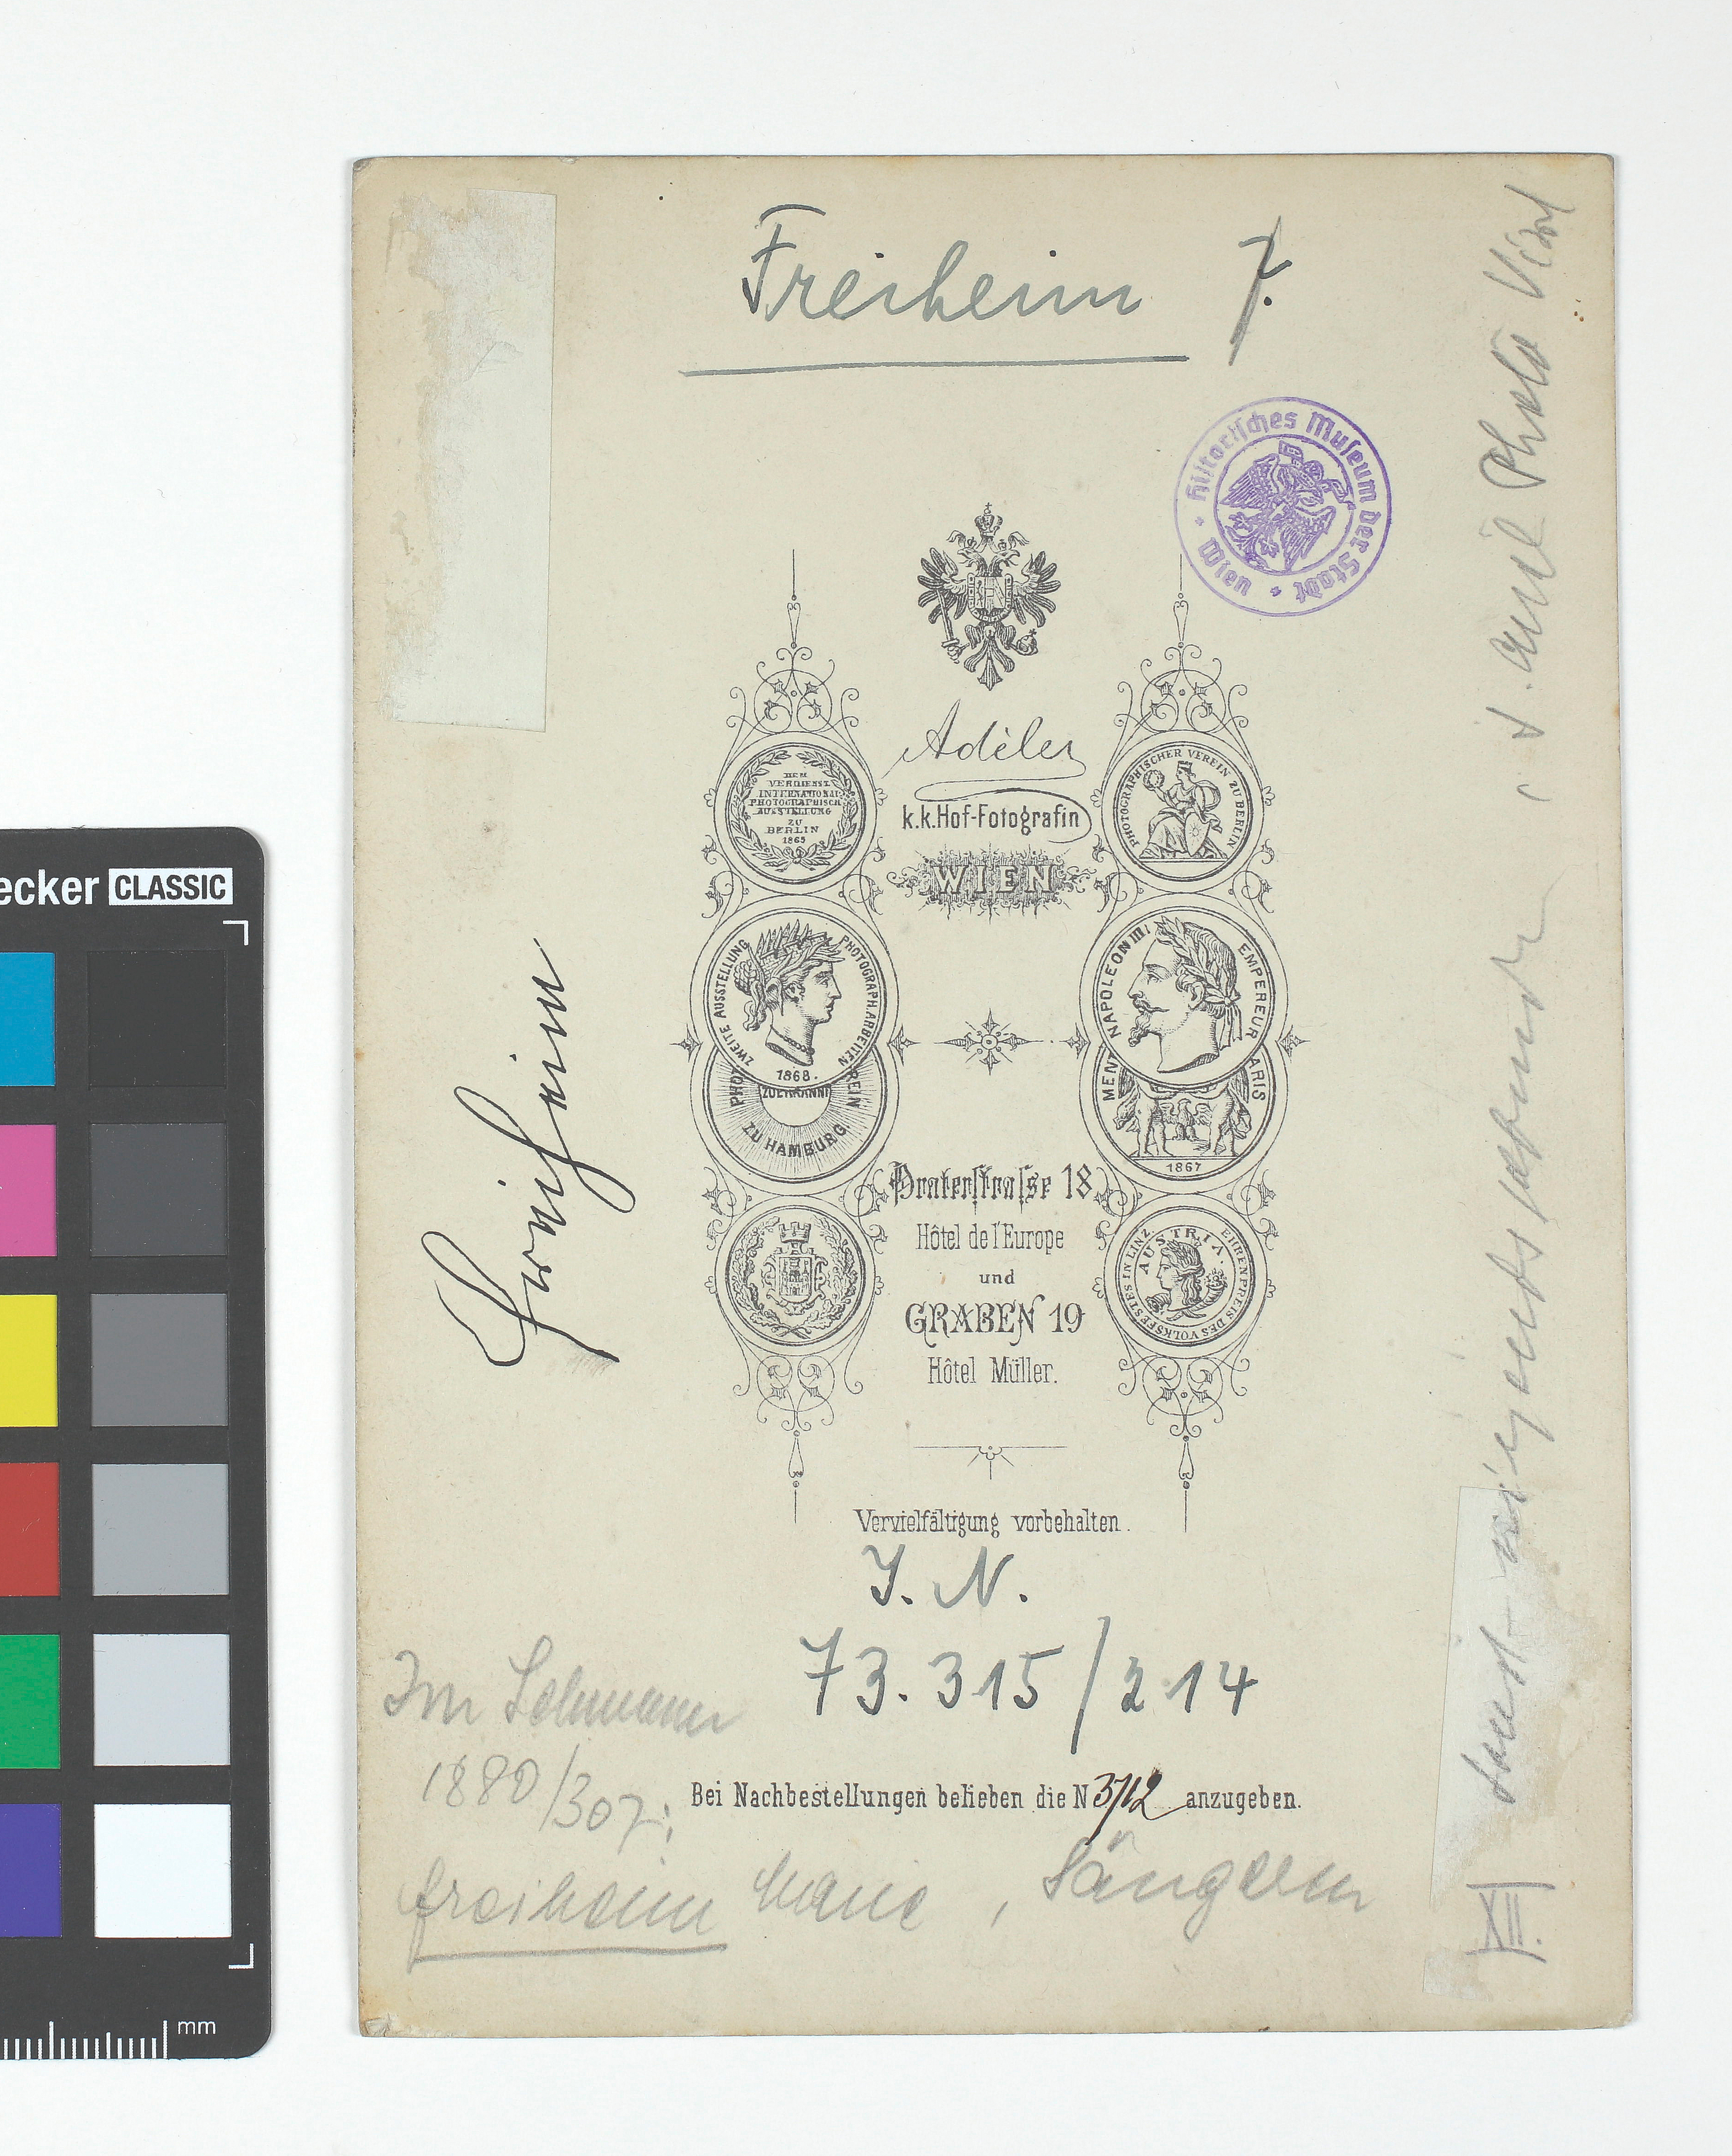 Freiheim 7.
Historisches Museum der Stadt Wien
Adèle
k.k.Hof-Fotografin
WIEN
DEM VERDIENST
INTERNATIONAL
PHOTOGRAPHISCH
AUSSTELLUNG
ZU
BERLIN
1865
PHOTOGRAPHISCHER VEREIN ZU BERLIN
ZWEITE AUSSTELLUNG PHOTOGRAPH. ARBEITEN
1868.
ZU HAMBURG.
NAPOLEON III EMPEREUR
1867
Praterstrasse 18
Hôtel de l'Europe
und
GRABEN 19
Hôtel Müller.
AUSTRIA.
EHRENPREIS DES VOLKSFESTES IN LINZ
Vervielfältigung vorbehalten.
J. N.
73.315/214
Im Lehmann
1880/307:
Bei Nachbestellungen belieben die N 3712 anzugeben.
Freiheim Marie, Sängerin
Freiheim
sonst nirgends
Photo
XIII.
ecker CLASSIC
mm